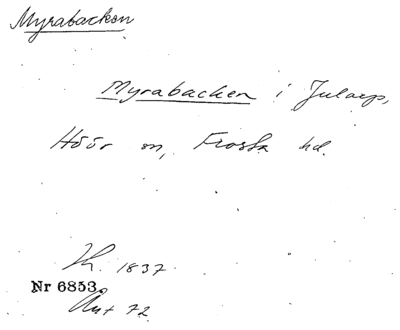 Myrabacken
Myrabacken i Jularp,
Höör sn, Frosta hd.
Kh. 1837
Nr 6853
Ant 72